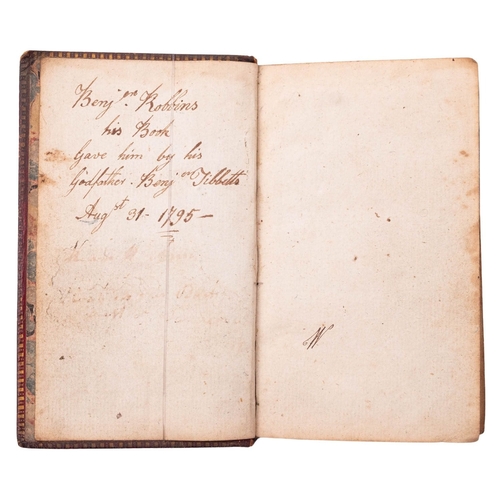 Benjmn Robbins
his Book
Gave him by his
Godfather Benjmn Tibbetts
Augst 31 - 1795 -
W